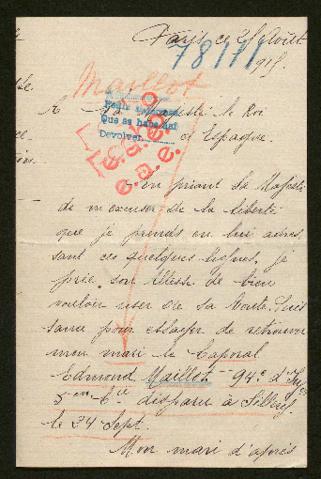 Paris ce 25 Août
78111
915.
Maillot
A Sa Majesté le Roi
d'Espagne.
Que se
Devolver
e.a.e.
en priant Sa Majesté
de m'excuser de la liberté
que je prends en lui adres
sant ces quelques lignes, je
prie son Altesse de bien
vouloir user de sa haute
sance pour essayer de retrouver
mon mari le Caporal
Edmond Maillot 94e d'Inf
5em Cie disparu à Sillery
le 24 Sept.
Mon mari d'après